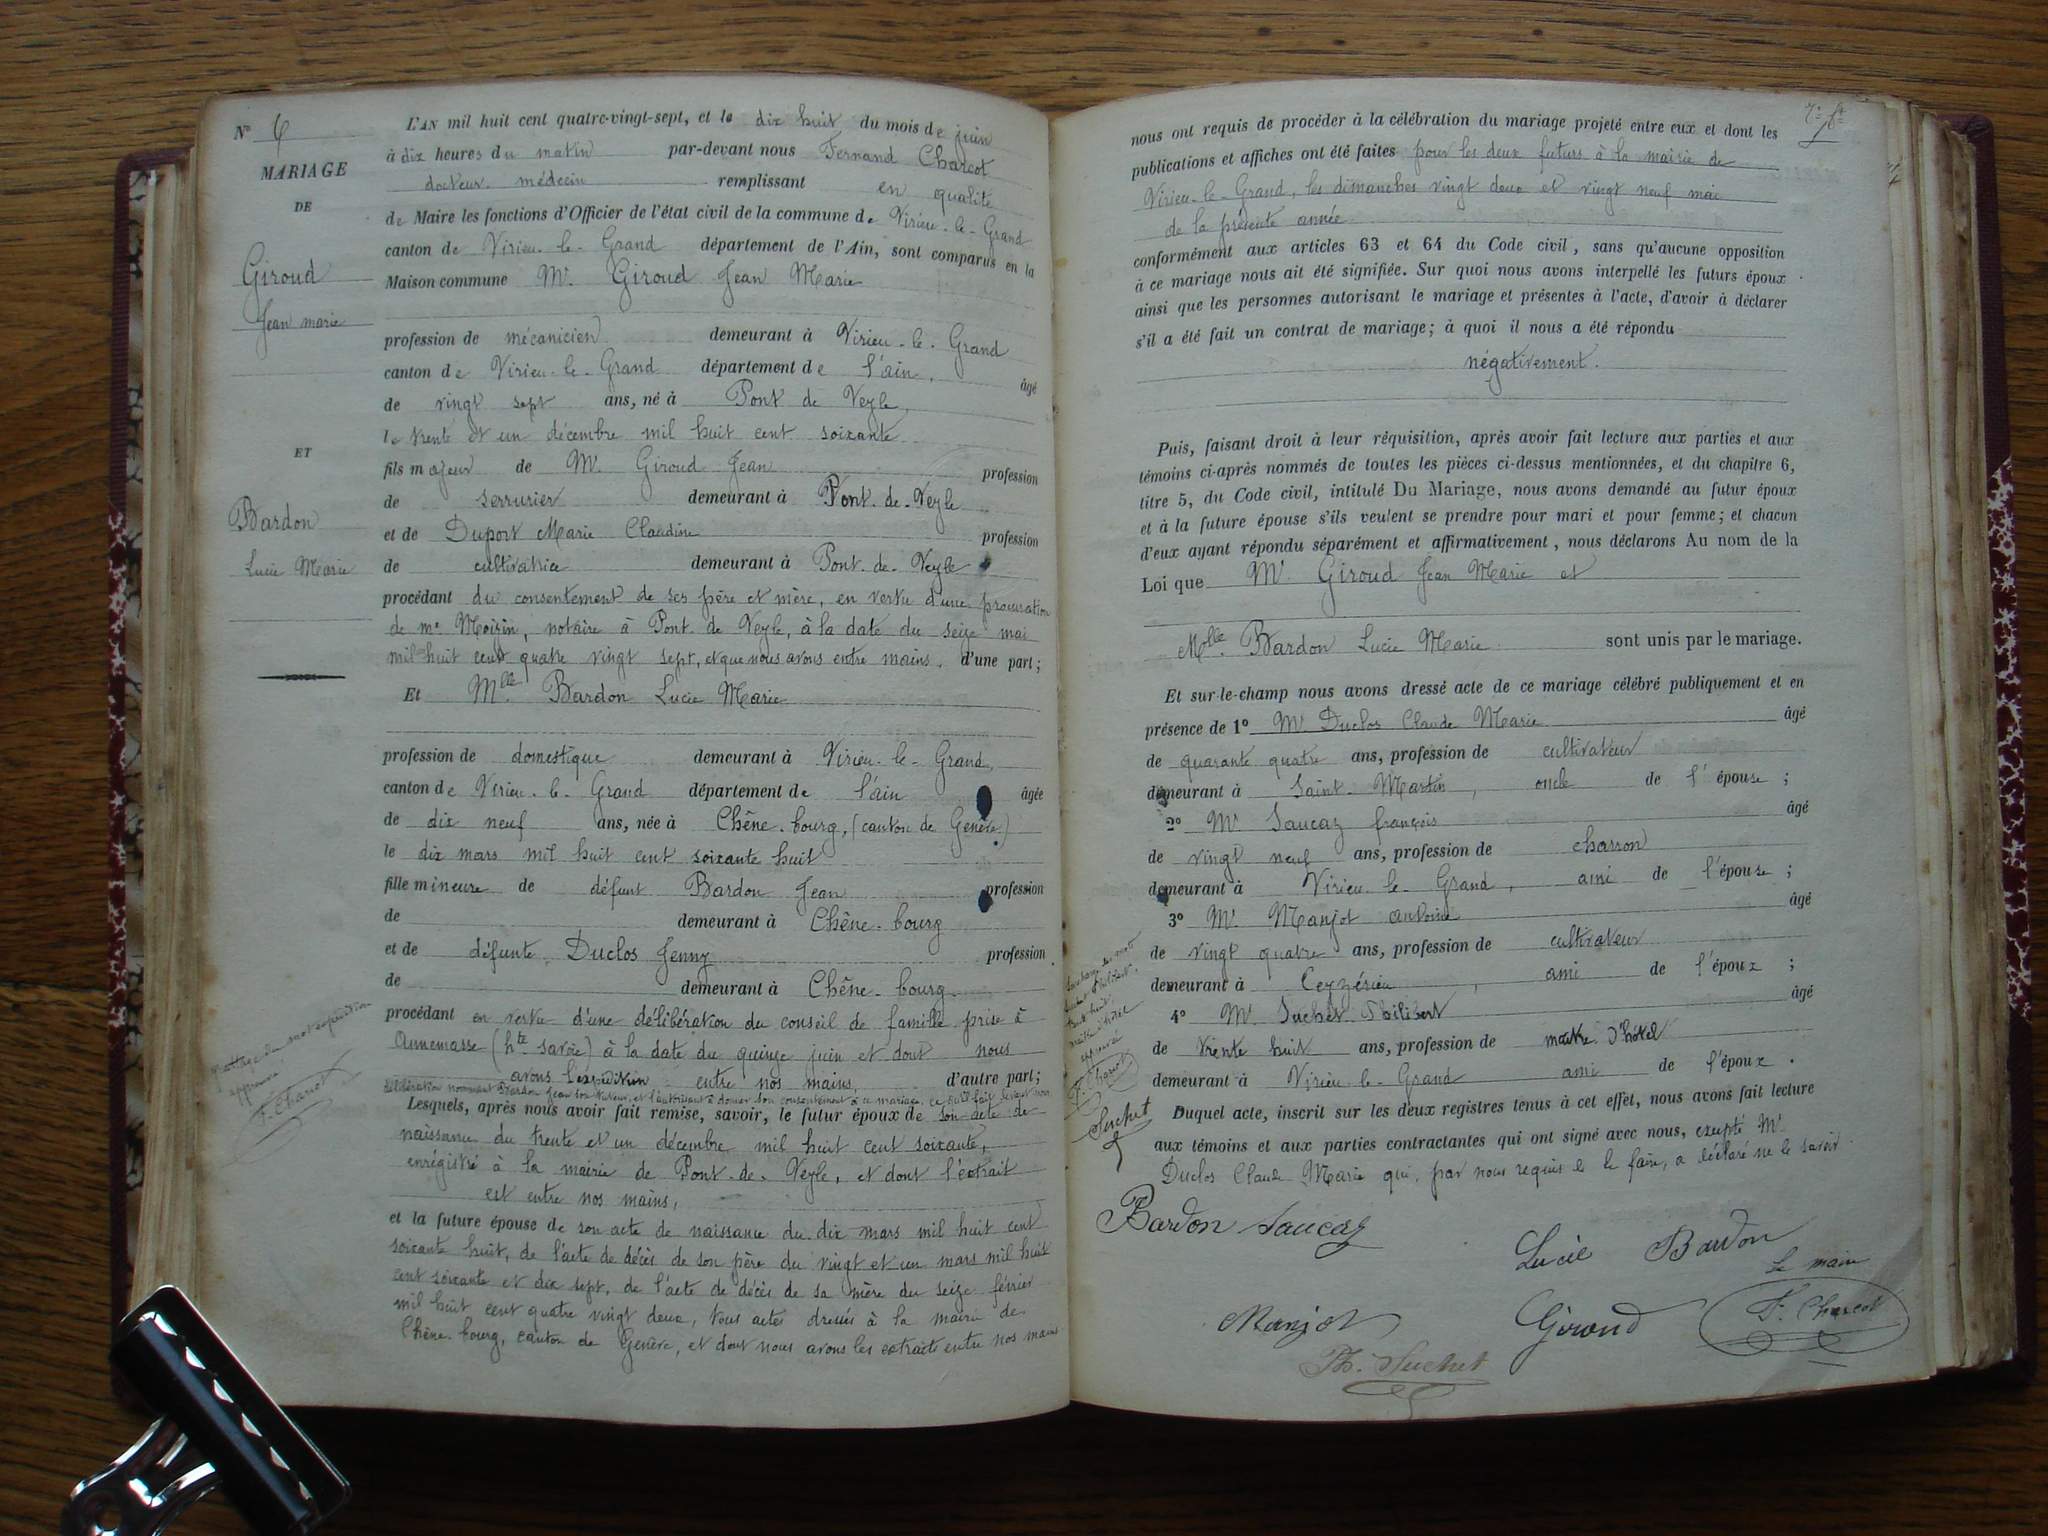 N° 6
MARIAGE
DE
Giroud
Jean marie
ET
Bardon
Lucie Marie
L'AN mil huit cent quatre-vingt-sept, et le dix huit du mois de juin
à dix heures du matin par-devant nous Fernand Charcot
docteur médecin remplissant en qualité
de Maire les fonctions d'Officier de l'état civil de la commune de Virieu-le-Grand
canton de Virieu-le-Grand département de l'Ain, sont comparus en la
Maison commune Mr. Giroud Jean Marie
profession de mécanicien demeurant à Virieu-le-Grand
canton de Virieu-le-Grand département de l'ain, âgé
de vingt sept ans, né à Pont de Veyle,
le trente et un décembre mil huit cent soixante
fils majeur de Mr. Giroud Jean profession
de serrurier demeurant à Pont-de-Veyle
et de Duport Marie Claudine profession
de cultivatrice demeurant à Pont-de-Veyle
procédant du consentement de ses père et mère, en vertu d'une procuration
de me Moizin, notaire à Pont de Veyle, à la date du seize mai
mil huit cent quatre vingt sept, et que nous avons entre mains. d'une part;
Et Mlle Bardon Lucie Marie
profession de domestique demeurant à Virieu-le-Grand,
canton de Virieu-le-Grand département de l'ain âgée
de dix neuf ans, née à Chêne-bourg, (canton de Genève)
le dix mars mil huit cent soixante huit
fille mineure de défunt Bardon Jean profession
de demeurant à Chêne-bourg
et de défunte Duclos Jenny profession
de demeurant à Chêne-bourg
procédant en vertu d'une délibération du conseil de famille prise à
Annemasse (hte savoie) à la date du quinze juin et dont nous
avons l'expédition entre nos mains, d'autre part;
délibération nommant Bardon Jean son tuteur, et l'autorisant à donner son consentement à ce mariage, ce qu'il fait devant nous
approuvé
F. Charcot
Lesquels, après nous avoir fait remise, savoir, le futur époux de son acte de
naissance du trente et un décembre mil huit cent soixante,
enrégistré à la mairie de Pont-de-Veyle, et dont l'extrait
est entre nos mains,
et la future épouse de son acte de naissance du dix mars mil huit cent
soixante huit, de l'acte de décès de son père du vingt et un mars mil huit
cent soixante et dix sept, de l'acte de décès de sa mère du seize février
mil huit cent quatre vingt deux, tous actes dressés à la mairie de
Chêne-bourg, canton de Genève, et dont nous avons les extraits entre nos mains
nous ont requis de procéder à la célébration du mariage projeté entre eux et dont les
publications et affiches ont été faites pour les deux futurs à la mairie de
Virieu-le-Grand, les dimanches vingt deux et vingt neuf mai
de la présente année
conformément aux articles 63 et 64 du Code civil, sans qu'aucune opposition
à ce mariage nous ait été signifiée. Sur quoi nous avons interpellé les futurs époux
ainsi que les personnes autorisant le mariage et présentes à l'acte, d'avoir à déclarer
s'il a été fait un contrat de mariage; à quoi il nous a été répondu
négativement.
Puis, faisant droit à leur réquisition, après avoir fait lecture aux parties et aux
témoins ci-après nommés de toutes les pièces ci-dessus mentionnées, et du chapitre 6,
titre 5, du Code civil, intitulé Du Mariage, nous avons demandé au futur époux
et à la future épouse s'ils veulent se prendre pour mari et pour femme; et chacun
d'eux ayant répondu séparément et affirmativement, nous déclarons Au nom de la
Loi que Mr. Giroud Jean Marie et
Melle Bardon Lucie Marie sont unis par le mariage.
Et sur-le-champ nous avons dressé acte de ce mariage célébré publiquement et en
présence de 1° Mr Duclos Claude Marie âgé
de quarante quatre ans, profession de cultivateur
demeurant à Saint-Martin, oncle de l'épouse;
2° Mr. Saucaz françois âgé
de vingt neuf ans, profession de charron
demeurant à Virieu-le-Grand, ami de l'épouse;
3° Mr. Manjot antoine âgé
de vingt quatre ans, profession de cultivateur
demeurant à Ceyzérieu, ami de l'époux;
4° Mr. Suchet Philibert âgé
de trente huit ans, profession de maître d'hôtel
demeurant à Virieu-le-Grand ami de l'époux.
Duquel acte, inscrit sur les deux registres tenus à cet effet, nous avons fait lecture
aux témoins et aux parties contractantes qui ont signé avec nous, excepté Mr.
Duclos Claude Marie qui, par nous requis de le faire, a déclaré ne le savoir.
trente huit,
maître d'hôtel
approuvé
F. Charcot
Suchet
Bardon Saucaz
Lucie Bardon
le maire
Manjot
Giroud
F. Charcot
Ph. Suchet